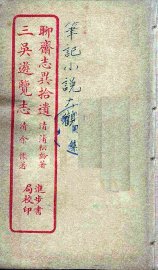 筆記小說大觀
聊齋志異拾遺
清 蒲松齡著
三吳遊覽志
清 余懷著
進步書
局校印